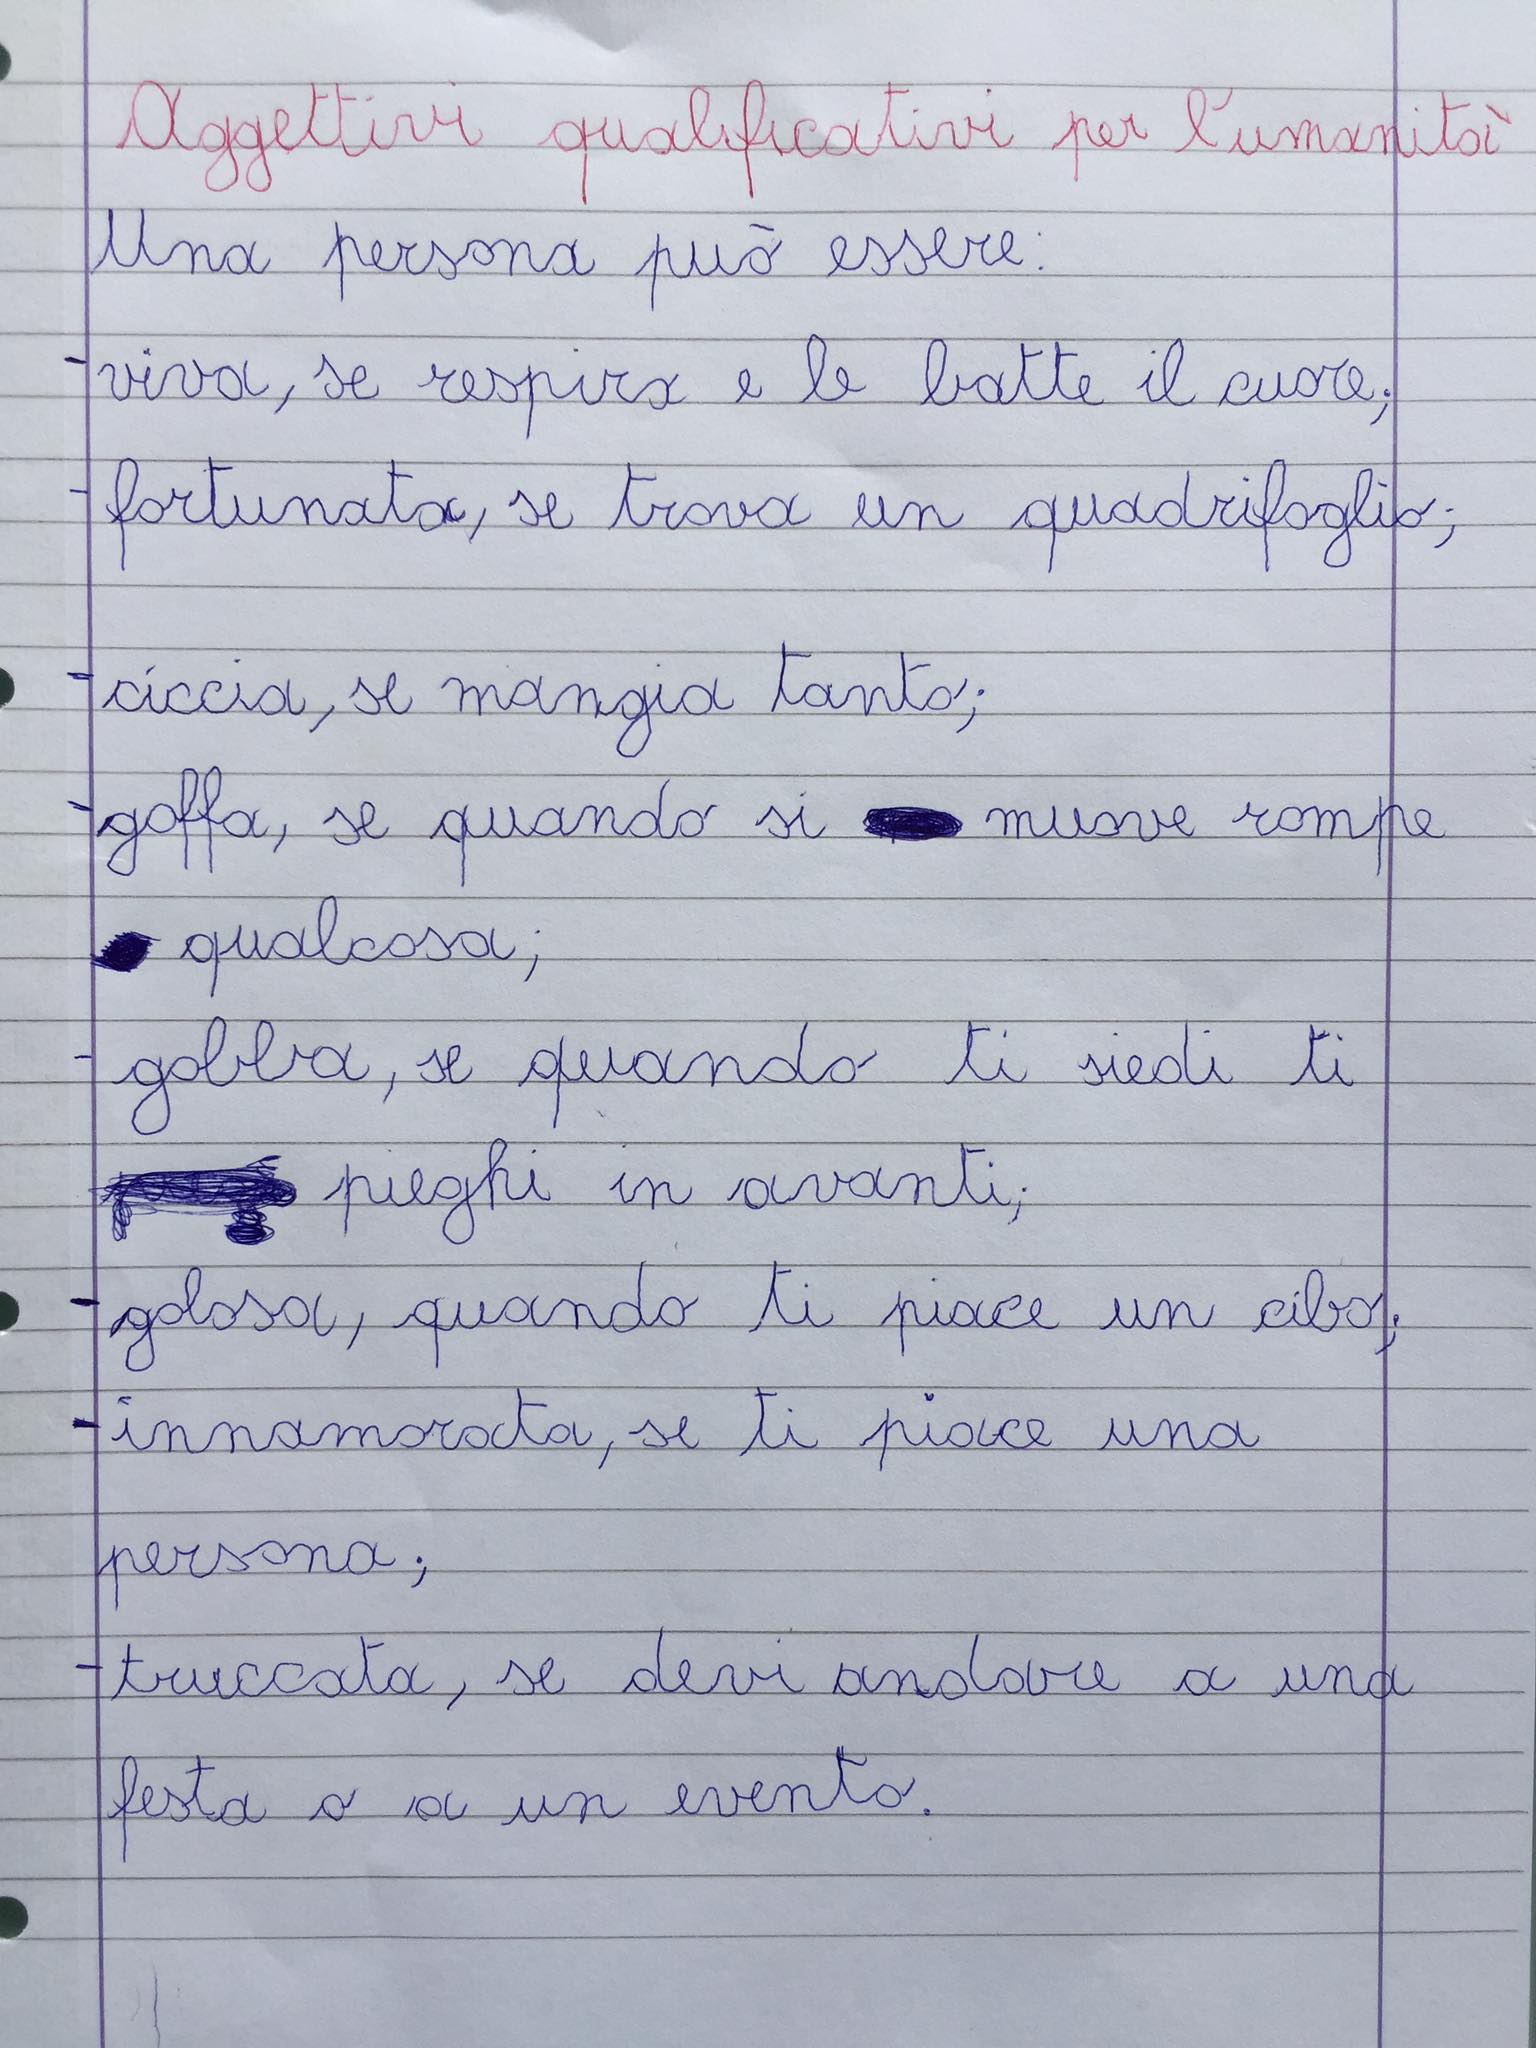 Aggettivi qualificativi per l'umanità
Una persona può essere:
- viva, se respira e le batte il cuore;
- fortunata, se trova un quadrifoglio;
- ciccia, se mangia tanto;
- goffa, se quando si muove rompe
qualcosa;
- gobba, se quando ti siedi ti
pieghi in avanti;
- golosa, quando ti piace un cibo;
- innamorata, se ti piace una
persona;
- truccata, se devi andare a una
festa o a un evento.